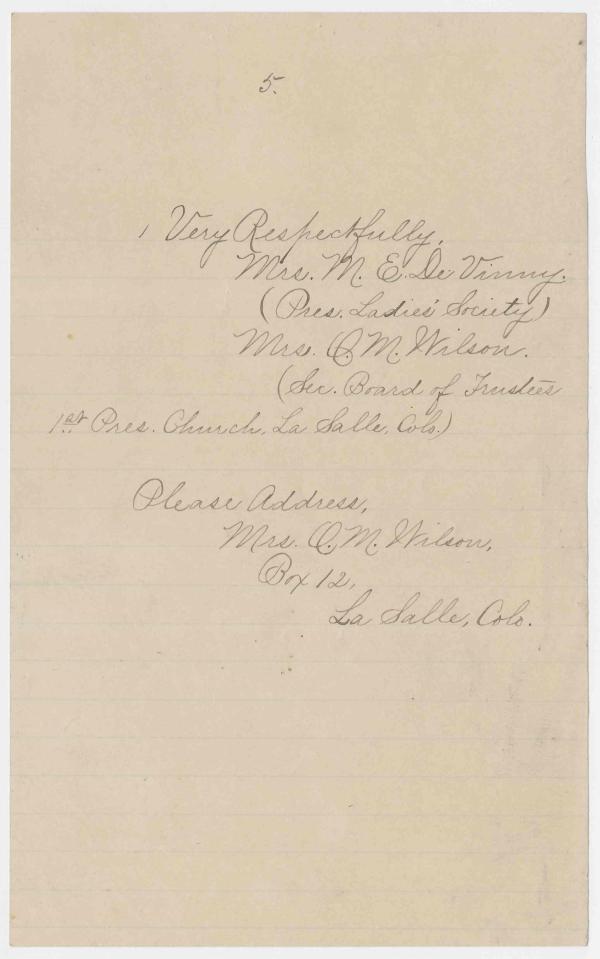 5.
Very Respectfully,
Mrs. M. E. De Vinny.
(Pres. Ladies' Society)
Mrs. O. M. Wilson.
(Sec. Board of Trustees
1st Pres. Church, La Salle, Colo.)
Please Address,
Mrs. O. M. Wilson,
Box 12,
La Salle, Colo.